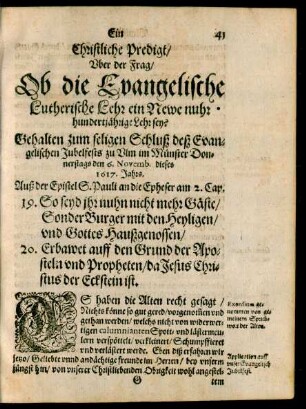 Ein 41
Christliche Predigt/
Vber der Frag/
Ob die Evangelische
Lutherische Lehr ein Newe nuhr
hundertjährige Lehr sey?
Gehalten zum seligen Schluß deß Evan-
gelischen Jubelfests zu Vlm im Münster Don-
nerstags den 6. Novemb. dieses
1617. Jahrs.
Auß der Epistel S. Pauli an die Epheser am 2. Cap.
19. So seyd jhr nuhn nicht mehr Gäste/
Sonder Burger mit den Heyligen/
vnd Gottes Haußgenossen/
20. Erbawet auff den Grund der Apo-
steln vnd Propheten/ da Jesus Chri-
stus der Eckstein ist.
ES haben die Alten recht gesagt/
Nichts könne so gut gered/ vorgenommen vnd
gethan werden/ welchs nicht von widerwer-
tigen calumnianten, Spott- vnd Lästermeu-
lern verspottet/ verkleinert/ Schumpffiert
vnd verlästert werde. Eben diß erfahren wir
jetzo/ Geliebte vnnd andächtige freunde im Herren/ bey vnserm
jüngst hin/ von vnserer Christliebenden Obrigkeit wohl angestel-
tem
Exordium
Application auff
Jubelfest.